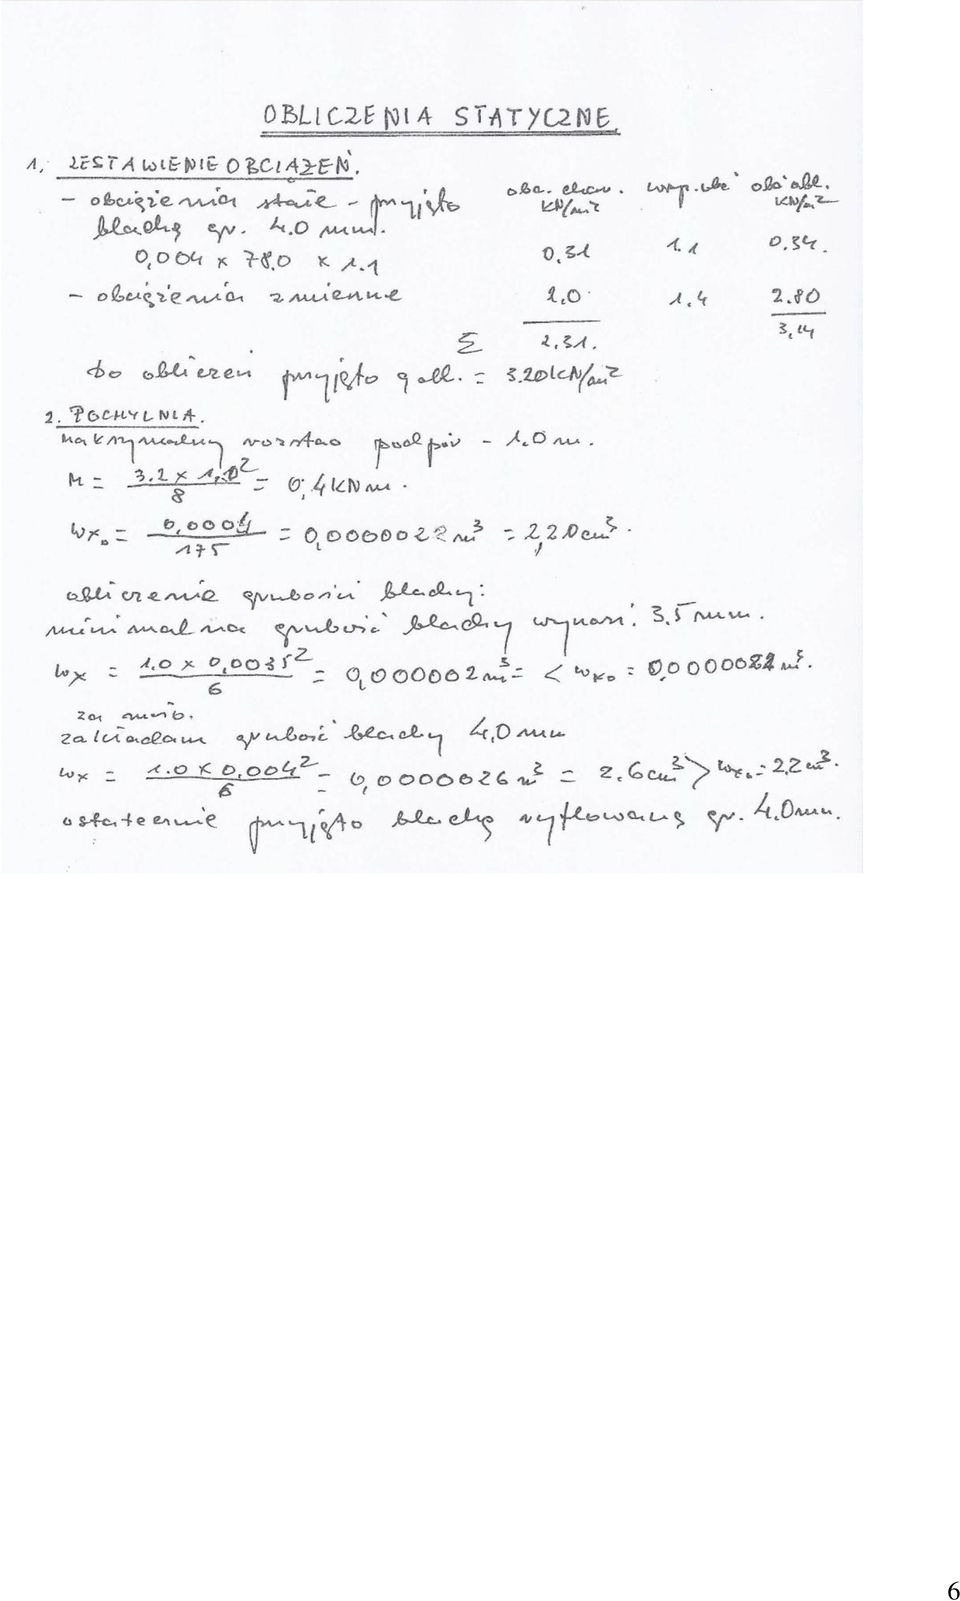 OBLICZENIA STATYCZNE
1. ZESTAWIENIE OBCIĄŻEŃ.
- obciążenia stałe - przyjęto obc. char. wsp. obc obc obl.
blachę gr. 4.0 mm. kN/m² kN/m²
0,004 x 78.0 x 1.1 0.31 1.1 0.34.
- obciążenia zmienne 2.0 1.4 2.80
Σ 2.31. 3,14
Do obliczeń przyjęto q obl. = 3.20 kN/m²
2. POCHYLNIA.
Maksymalny rozstao podpór - 1.0 m.
M = 3.2 x 1,0² / 8 = 0,4 kNm.
Wx₀ = 0,0004 / 175 = 0,0000022 m³ = 2,20 cm³.
obliczenie grubości blachy:
minimalna grubość blachy wynosi: 3.5 mm.
Wx = 1.0 x 0,0035² / 6 = 0,000002 m³ = < Wx₀ = 0,0000022 m³.
za mało.
zakładam grubość blachy 4,0 mm
Wx = 1.0 x 0.004² / 6 = 0,0000026 m³ = 2.6 cm³ > Wx₀ = 2,2 cm³.
ostatecznie przyjęto blachę ryflowaną gr. 4.0 mm.
6